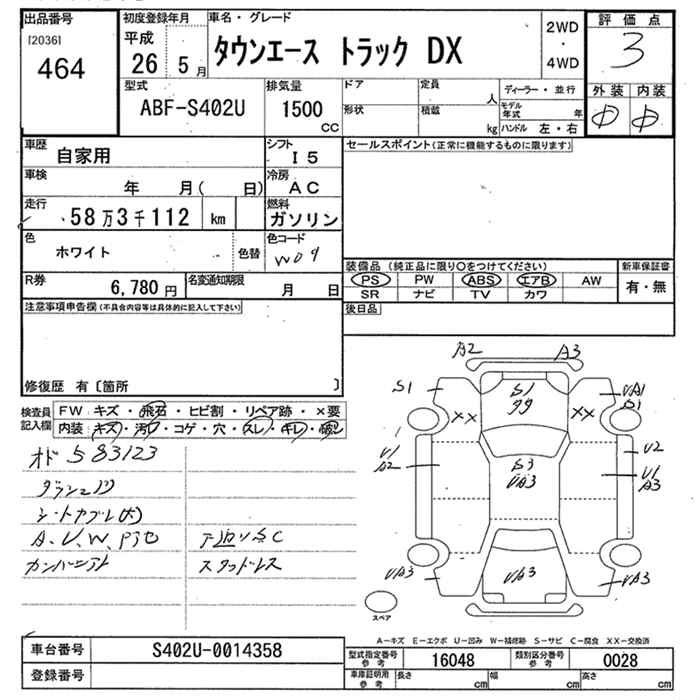 出品番号
[2036]
464
初度登録年月
平成
26 5月
車名・グレード
タウンエース トラック DX
2WD
・
4WD
評価点
3
外装 内装
D D
型式
ABF-S402U
排気量
1500
CC
ドア
形状
定員
人
積載
kg
ディーラー・並行
モデル年式 年
ハンドル 左・右
車歴
自家用
シフト
I5
車検
年 月( 日)
冷房
AC
走行
58万3千112 km
燃料
ガソリン
色
ホワイト
色替
色コード
W09
R券
6,780円
名変通知期限
月 日
セールスポイント(正常に機能するものに限ります)
装備品(純正品に限り○をつけてください)
新車保証書
PS PW ABS エアB AW
SR ナビ TV カワ
有・無
後日品
注意事項申告欄(不具合内容等は具体的に記入して下さい)
修復歴 有〔箇所 〕
検査員記入欄
FW:キズ・飛石・ヒビ割・リペア跡・×要
内装:キズ・汚レ・コゲ・穴・スレ・キレ
オド583123
A、U、W、P
下廻りSC
スタッドレス
A2 A3
S1
S1
99
XX XX
UA1
S1
U1
A2
S3
UA3
U2
U1
A3
UA3
UA3
UA3
スペア
A-キズ E-エクボ U-凹み W-補修跡 S-サビ C-腐食 XX-交換済
車台番号
S402U-0014358
登録番号
型式指定番号
参考
16048
類別区分番号
参考
0028
車庫証明用
参考
長さ cm
幅 cm
高さ cm